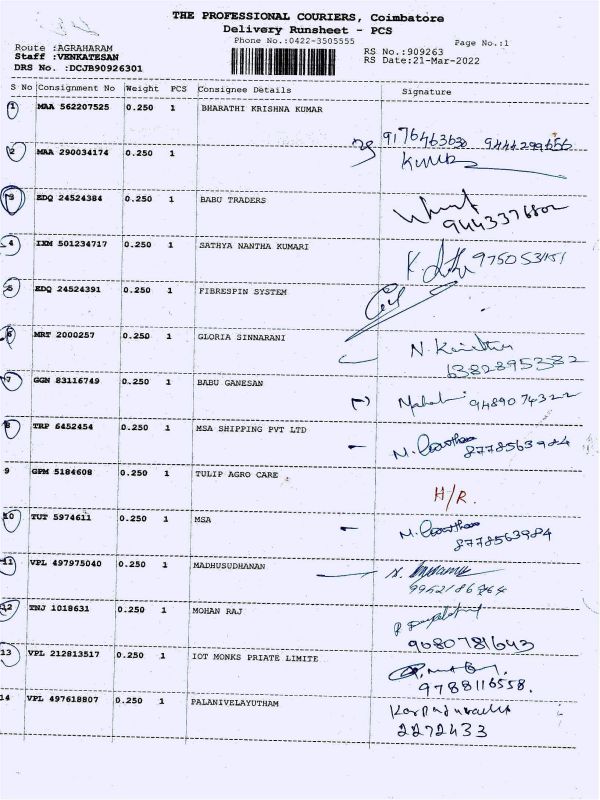 THE PROFESSIONAL COURIERS, Coimbatore
Delivery Runsheet - PCS
Phone No.:0422-3505555
Page No.:1
Route :AGRAHARAM
RS No.:909263
Staff :VENKATESAN
RS Date:21-Mar-2022
DRS No. :DCJB90926301
S No Consignment No Weight PCS Consignee Details Signature
1 MAA 562207525 0.250 1 BHARATHI KRISHNA KUMAR
2 MAA 290034174 0.250 1
3 EDQ 24524384 0.250 1 BABU TRADERS
9443376802
4 IXM 501234717 0.250 1 SATHYA NANTHA KUMARI
5 EDQ 24524391 0.250 1 FIBRESPIN SYSTEM
6 MRT 2000257 0.250 1 GLORIA SINNARANI
6382895382
7 GGN 83116749 0.250 1 BABU GANESAN
9489074322
8 TRP 6452454 0.250 1 MSA SHIPPING PVT LTD
8778563984
9 GPM 5184608 0.250 1 TULIP AGRO CARE
H/R.
10 TUT 5974611 0.250 1 MSA
8778563984
11 VPL 497975040 0.250 1 MADHUSUDHANAN
12 TNJ 1018631 0.250 1 MOHAN RAJ
9080781643
13 VPL 212813517 0.250 1 IOT MONKS PRIATE LIMITE
9788116558.
14 VPL 497618807 0.250 1 PALANIVELAYUTHAM
2272433